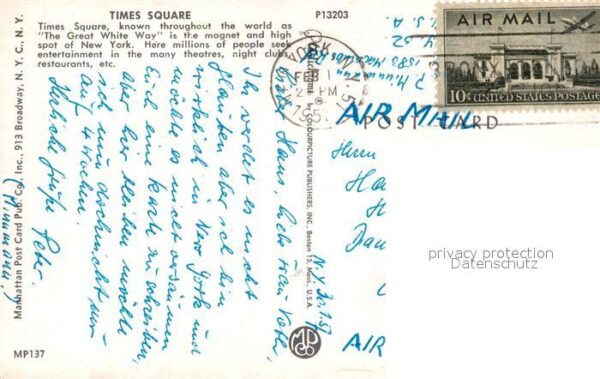 TIMES SQUARE
P13203
Times Square, known throughout the world as
"The Great White Way" is the magnet and high
spot of New York. Here millions of people seek
entertainment in the many theatres, night clubs
restaurants, etc.
Manhattan Post Card Pub. Co., Inc., 913 Broadway, N. Y. C., N. Y.
by COLOURPICTURE PUBLISHERS, INC., Boston 15, Mass., U.S.A.
MP137
AIR MAIL
10¢ UNITED STATES POSTAGE
FEB
PM
AIR MAIL
POST CARD
N.Y. 30.1.57
Lieber Hans, liebe Frau
Ihr werdet es nicht
glauben aber ich bin
wirklich in New York und
möchte es nicht versäumen
Euch eine Karte zu schreiben,
aber hier bleiben möchte
ich und doch nicht nur
auf 4 Wochen.
Herzliche Grüße Peter
Herrn
AIR
privacy protection
Datenschutz